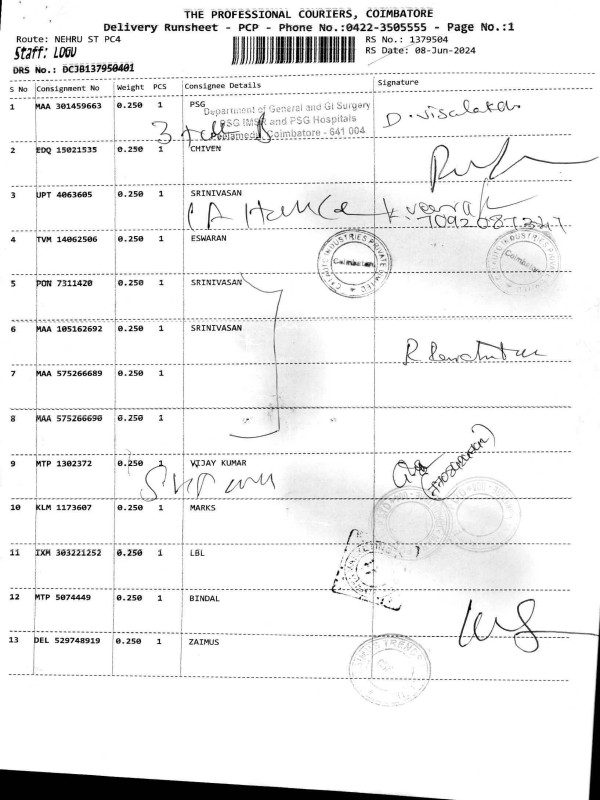 THE PROFESSIONAL COURIERS, COIMBATORE
Delivery Runsheet - PCP - Phone No.:0422-3505555 - Page No.:1
Route: NEHRU ST PC4 RS No.: 1379504
Staff: LOGU RS Date: 08-Jun-2024
DRS No.: DCJB137950401
S No Consignment No Weight PCS Consignee Details Signature
1 MAA 301459663 0.250 1 PSG
Department of General and GI Surgery
PSG IMSR and PSG Hospitals
Peelamedu, Coimbatore - 641 004
2 EDQ 15021535 0.250 1 CHIVEN
3 UPT 4063605 0.250 1 SRINIVASAN
4 TVM 14062506 0.250 1 ESWARAN
Coimbatore
5 PON 7311420 0.250 1 SRINIVASAN
6 MAA 105162692 0.250 1 SRINIVASAN
7 MAA 575266689 0.250 1
8 MAA 575266690 0.250 1
9 MTP 1302372 0.250 1 VIJAY KUMAR
10 KLM 1173607 0.250 1 MARKS
11 IXM 303221252 0.250 1 LBL
12 MTP 5074449 0.250 1 BINDAL
13 DEL 529748919 0.250 1 ZAIMUS